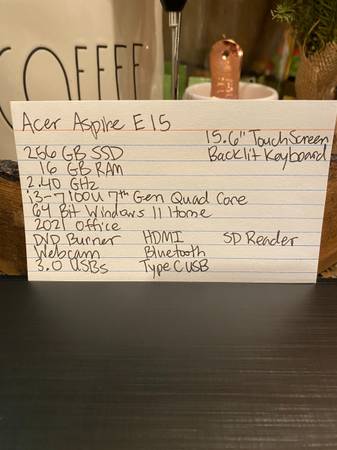 COFFEE
Acer Aspire E15
15.6" Touch Screen
256 GB SSD
Backlit Keyboard
16 GB RAM
2.40 GHz
i3-7100U 7th Gen Quad Core
64 Bit Windows 11 Home
2021 Office
DVD Burner HDMI SD Reader
Webcam Bluetooth
3.0 USBs Type C USB